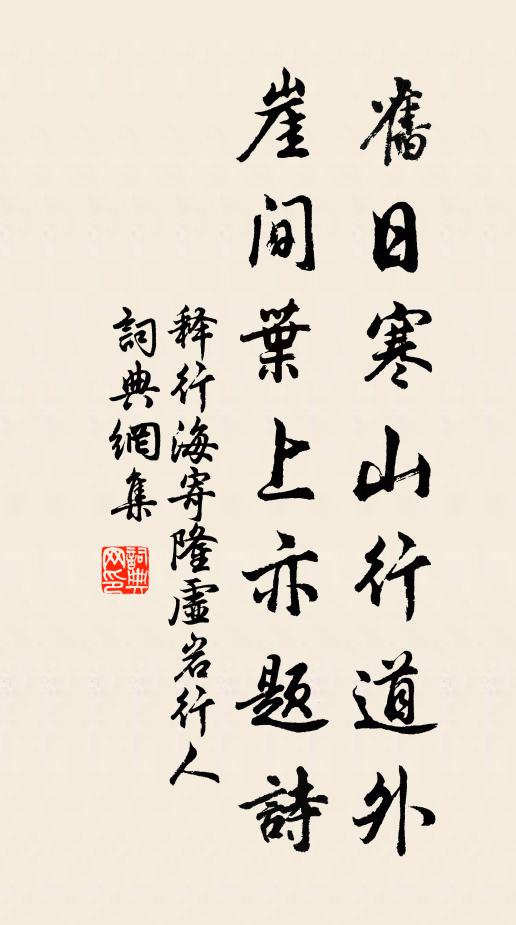 舊日寒山行道外
崖間葉上亦題詩
释行海寄隆虛岩行人
詞典網集
詞典網印